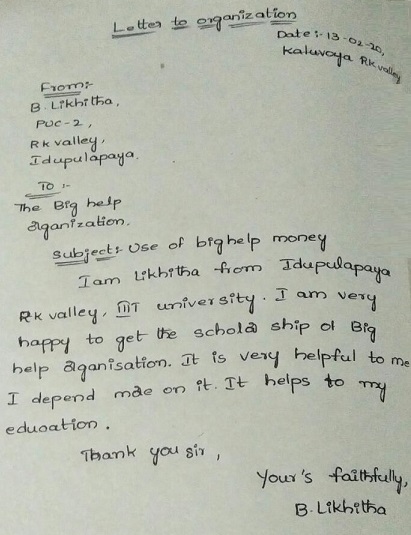 Letter to organization
Date :- 13-02-20,
Kaluvoya Rk valley
From:-
B. Likhitha,
PUC-2,
Rk valley,
Idupulapaya.
To :-
The Big help
organization.
Subject:- Use of bighelp money
I am Likhitha from Idupulapaya
Rk valley, IIIT university. I am very
happy to get the scholor ship of Big
help organisation. It is very helpful to me
I depend more on it. It helps to my
education.
Thank you sir,
Your's faithfully,
B. Likhitha